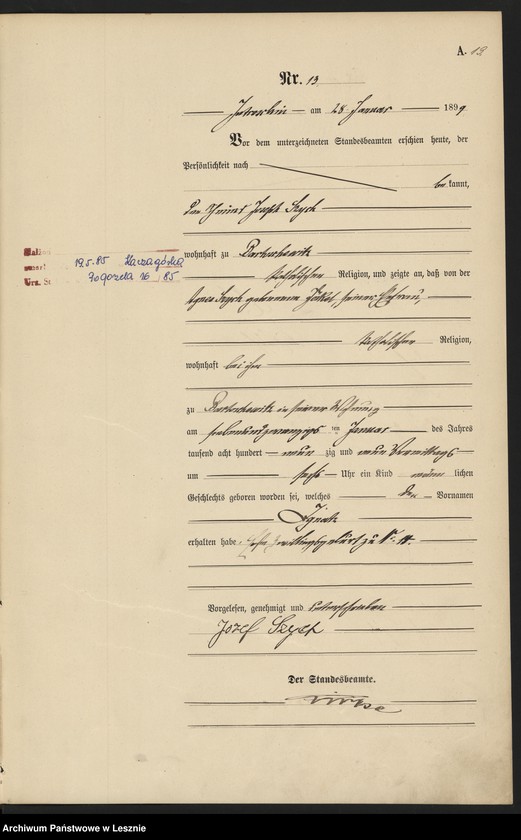 A. 13
Nr. 13
Jutroschin am 28 Januar 1899
Vor dem unterzeichneten Standesbeamten erschien heute, der
Persönlichkeit nach
be kannt,
der Joseph Szych
wohnhaft zu
19.5.85
Pogorzela 16/85
Urz. St
katholischer Religion, und zeigte an, daß von der
Agnes Szych geborenen seiner Ehefrau,
katholischer Religion,
wohnhaft bei ihm
zu in seiner Wohnung
am siebenundzwanzigsten Januar des Jahres
tausend acht hundert neun zig und neun Vormittags
um sechs Uhr ein Kind männ lichen
Geschlechts geboren worden sei, welches den Vornamen
Ignatz
erhalten habe.
Vorgelesen, genehmigt und unterschrieben
Józef Szych
Der Standesbeamte.
Archiwum Państwowe w Lesznie